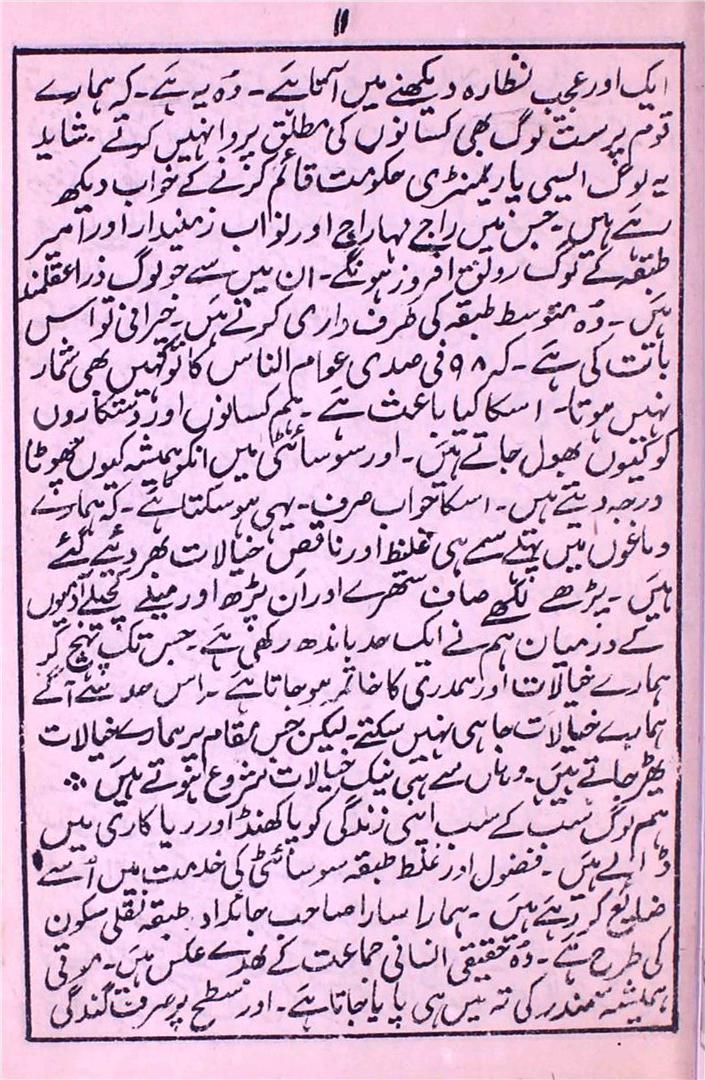 ۱۱
ایک اور عجیب نظارہ دیکھنے میں آتا ہے۔ وُہ یہ ہے۔ کہ ہمارے
قوم پرست لوگ بھی کسانوں کی مطلق پروا نہیں کرتے۔ شاید
یہ لوگ ایسی پارلیمنٹری حکومت قائم کرنے کے خواب دیکھ
رہے ہیں۔ جس میں راجے مہاراجے اور نواب زمیندار اور امیر
طبقہ کے لوگ رونق افروز ہونگے۔ ان میں سے جو لوگ ذرا عقلمند
ہیں۔ وُہ متوسط طبقہ کی طرف داری کرتے ہیں۔ حیرانی تو اس
بات کی ہے۔ کہ ۹۸ فی صدی عوام الناس کا تو کہیں بھی شمار
نہیں ہوتا۔ اسکا کیا باعث ہے۔ ہم کسانوں اور دستکاروں
کو کیوں بھول جاتے ہیں۔ اور سوسائٹی میں انکو ہمیشہ کیوں چھوٹا
درجہ دیتے ہیں۔ اسکا جواب صرف۔ یہی ہو سکتا ہے۔ کہ ہمارے
دماغوں میں پہلے سے ہی غلط اور ناقص خیالات بھر دیئے گئے
ہیں۔ پڑھے لکھے صاف ستھرے اور ان پڑھ اور میلے کچیلے آدمیوں
کے درمیان ہم نے ایک حد باندھ رکھی ہے۔ جس تک پہنچ کر
ہمارے خیالات اور ہمدری کا خاتمہ ہو جاتا ہے۔ اس حد سے آگے
ہمارے خیالات جا ہی نہیں سکتے۔ لیکن جس مقام پر ہمارے خیالات
ٹھر جاتے ہیں۔ وہاں سے ہی نیک خیالات شروع ہوتے ہیں
ہم لوگ سب کے سب اپنی زندگی کو پاکھنڈ اور ریاکاری میں
ڈالے ہیں۔ فضول اور غلط طبقہ سوسائٹی کی خدمت میں اُسے
ضایع کر رہے ہیں۔ ہمارا سارا صاحب جائداد طبقہ نقلی سکون
کی طرح ہے۔ وُہ حقیقی انسانی جماعت کے بھدے عکس ہیں۔ موتی
ہمیشہ سمندر کی تہ میں ہی پایا جاتا ہے۔ اور سطح پر صرف گندگی